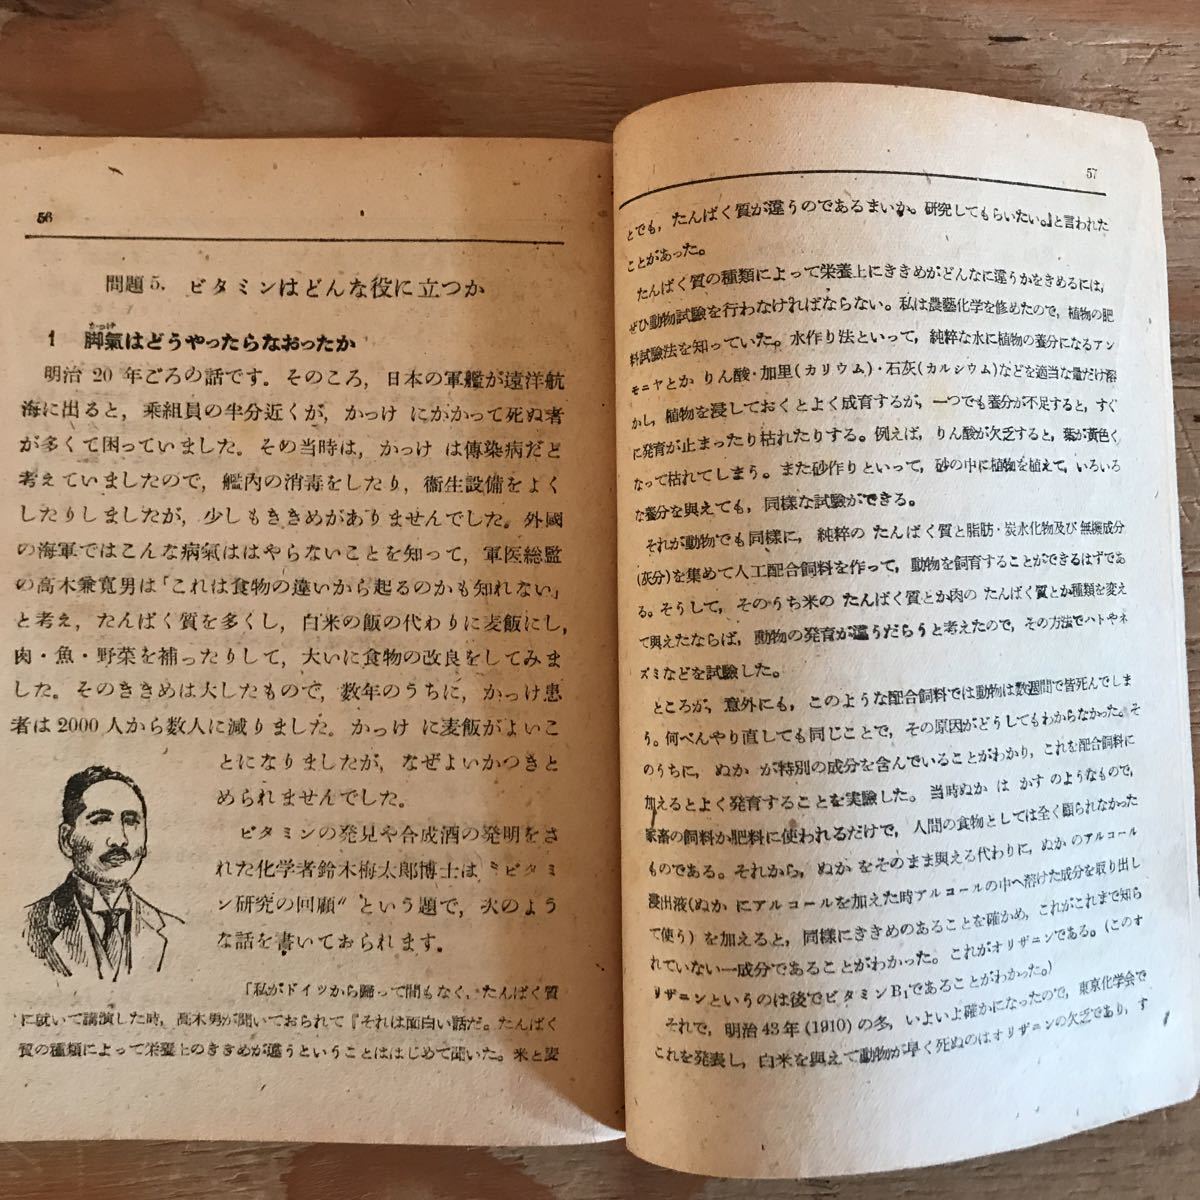 56
問題 5. ビタミンはどんな役に立つか
かっけ
1 脚氣はどうやったらなおったか
明治 20 年ごろの話です。そのころ, 日本の軍艦が遠洋航
海に出ると, 乗組員の半分近くが, かっけ にかかって死ぬ者
が多くて困っていました。その当時は, かっけ は傳染病だと
考えていましたので, 艦內の消毒をしたり, 衞生設備をよく
したりしましたが, 少しもききめがありませんでした。外國
の海軍ではこんな病氣ははやらないことを知って, 軍医総監
の高木兼寛男は「これは食物の違いから起るのかも知れない」
と考え, たんぱく質を多くし, 白米の飯の代わりに麦飯にし,
肉・魚・野菜を補ったりして, 大いに食物の改良をしてみま
した。そのききめは大したもので, 数年のうちに, かっけ患
者は 2000 人から数人に減りました。かっけ に麦飯がよいこ
とになりましたが, なぜよいかつきと
められませんでした。
ビタミンの発見や合成酒の発明をさ
れた化学者鈴木梅太郎博士は〝ビタミ
ン研究の回顧〟という題で, 次のよう
な話を書いておられます。
「私がドイツから歸って間もなく, たんぱく質
に就いて講演した時, 高木男が聞いておられて『それは面白い話だ。たんぱく
質の種類によって栄養上のききめが違うということははじめて聞いた。米と麦
57
とでも, たんぱく質が違うのであるまいか。研究してもらいたい。』と言われた
ことがあった。
たんぱく質の種類によって栄養上にききめがどんなに違うかをきめるには,
ぜひ動物試験を行わなければならない。私は農藝化学を修めたので, 植物の肥
料試驗法を知っていた。水作り法といって, 純粋な水に植物の養分になるアン
モニヤとか りん酸・加里(カリウム)・石灰(カルシウム)などを適当な量だけ溶
かし, 植物を浸しておくとよく成育するが, 一つでも養分が不足すると, すぐ
に発育が止まったり枯れたりする。例えば, りん酸が欠乏すると, 葉が黃色く
なって枯れてしまう。また砂作りといって, 砂の中に植物を植えて, いろいろ
な養分を與えても, 同樣な試驗ができる。
それが動物でも同樣に, 純粋の たんぱく質と脂肪・炭水化物及び無機成分
(灰分)を集めて人工配合飼料を作って, 動物を飼育することができるはずであ
る。そうして, そのうち米の たんぱく質とか肉の たんぱく質とか種類を変え
て與えたならば, 動物の発育が違うだらうと考えたので, その方法でハトやネ
ズミなどを試驗した。
ところが, 意外にも, このような配合飼料では動物は数週間で皆死んでしま
う。何べんやり直しても同じことで, その原因がどうしてもわからなかった。そ
のうちに, ぬか が特別の成分を含んでいることがわかり, これを配合飼料に
加えるとよく発育することを実驗した。当時ぬか は かす のようなもので,
家畜の飼料か肥料に使われるだけで, 人間の食物としては全く顧られなかった
ものである。それから, ぬか をそのまま與える代わりに, ぬか のアルコール
浸出液(ぬか にアルコールを加えた時アルコールの中へ溶けた成分を取り出し
て使う) を加えると, 同樣にききめのあることを確かめ, これがこれまで知ら
れていない一成分であることがわかった。これがオリザニンである。(このオ
リザニンというのは後でビタミンB₁であることがわかった。)
それで, 明治 43 年 (1910) の冬, いよいよ確かになったので, 東京化学会で
これを発表し, 白米を與えて動物が早く死ぬのはオリザニンの欠乏であり, す